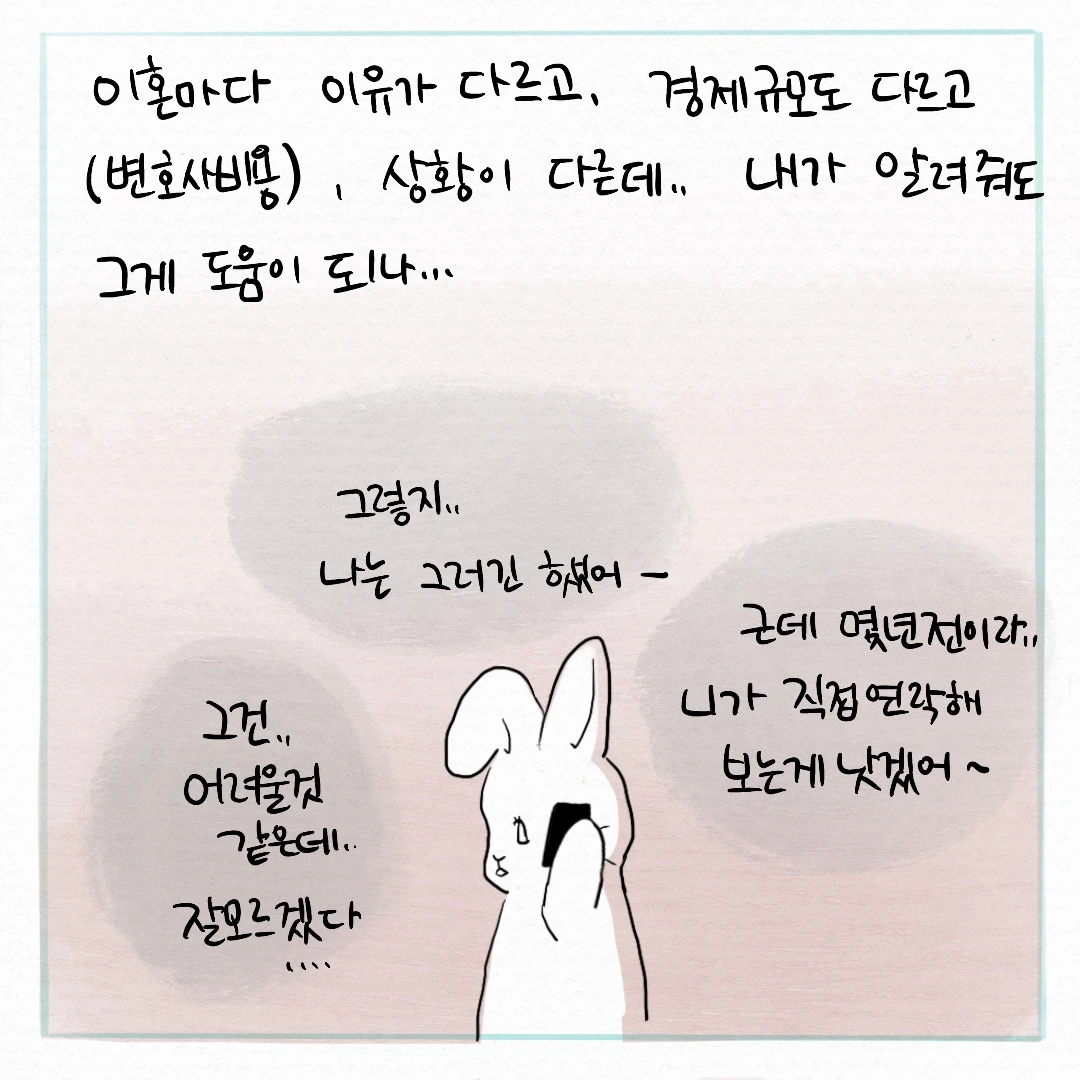 이혼마다 이유가 다르고, 경제규모도 다르고
(변호사비용), 상황이 다른데.. 내가 알려줘도
그게 도움이 되나...
그렇지..
나는 그러긴 했어 ~
근데 몇년전이라..
니가 직접연락해
보는게 낫겠어 ~
그건..
어려울것
같은데..
잘모르겠다
....